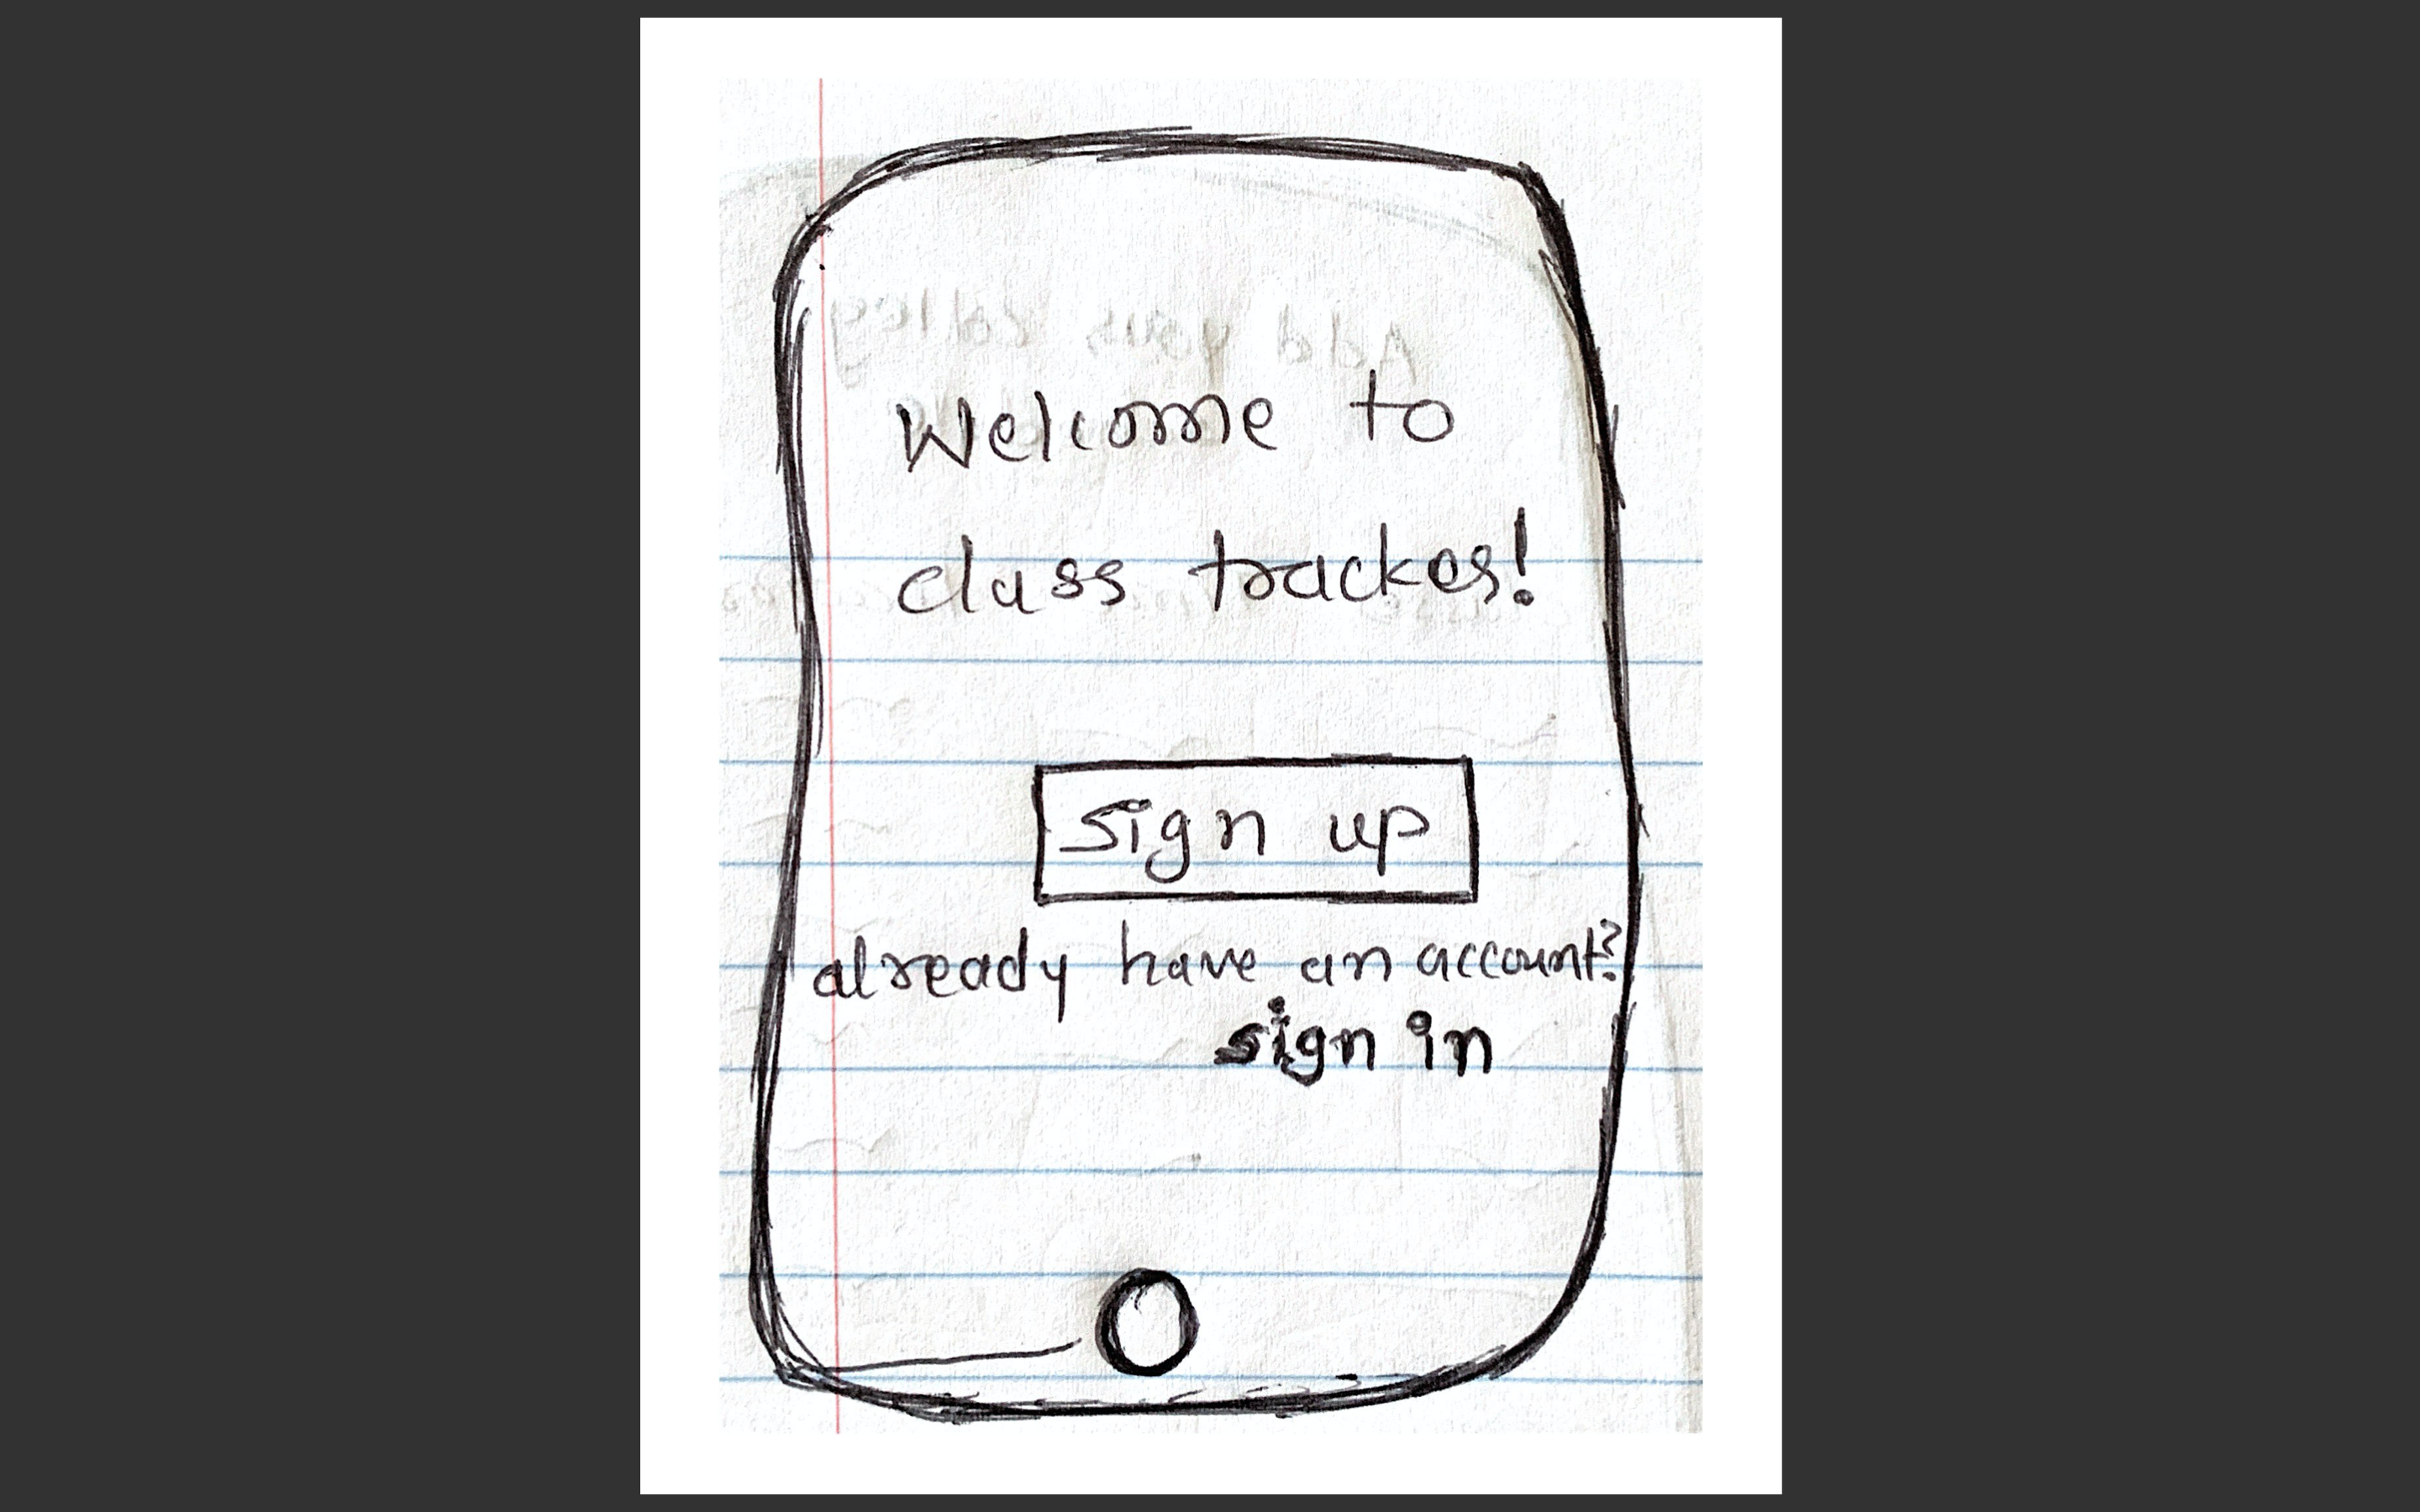 Add your colleg
Welcome to
class tracker!
sign up
already have an account?
sign in